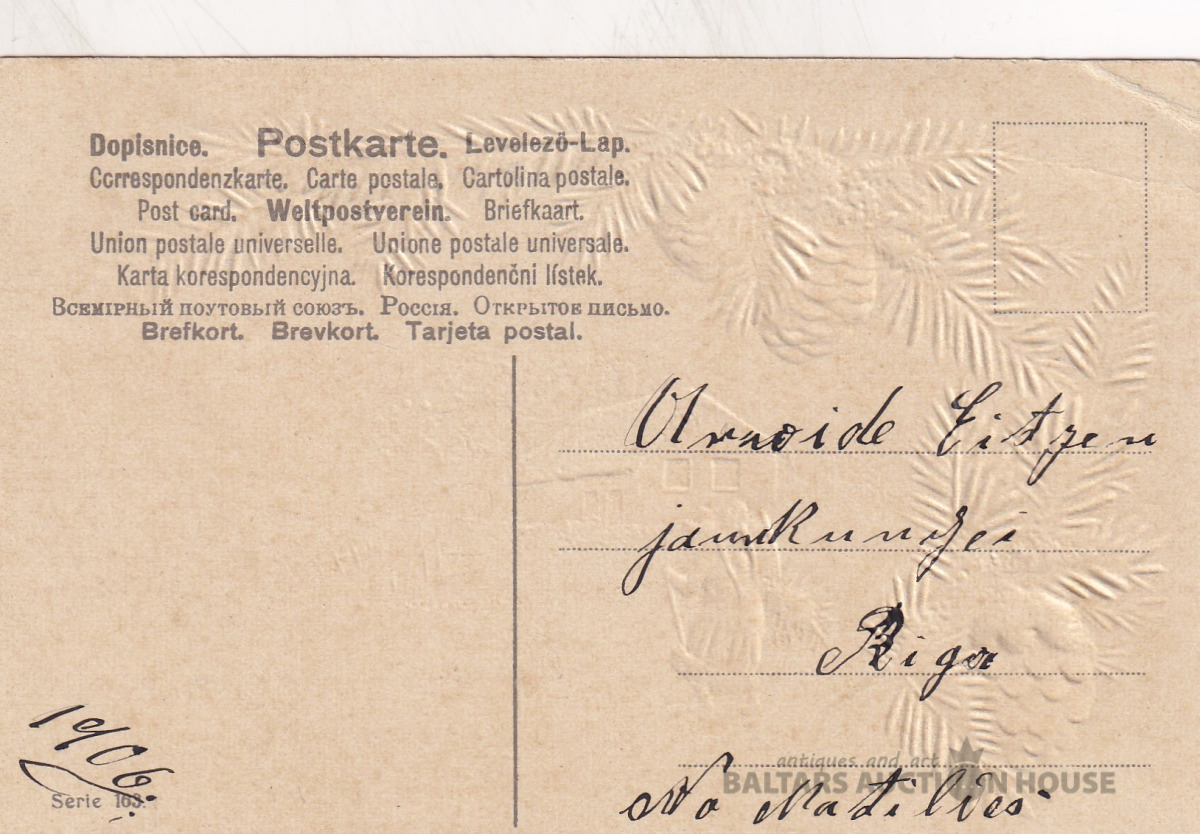 Dopisnice. Postkarte. Levelező-Lap.
Correspondenzkarte. Carte postale. Cartolina postale.
Post card. Weltpostverein. Briefkaart.
Union postale universelle. Unione postale universale.
Karta korespondencyjna. Korespondenčni lístek.
Всемірный поутовый союзъ. Россія. Открытое письмо.
Brefkort. Brevkort. Tarjeta postal.
Eitzen
jaunkundzei
Riga
No Matildes
1906.
Serie 163.
antiques and art
BALTARS AUCTION HOUSE